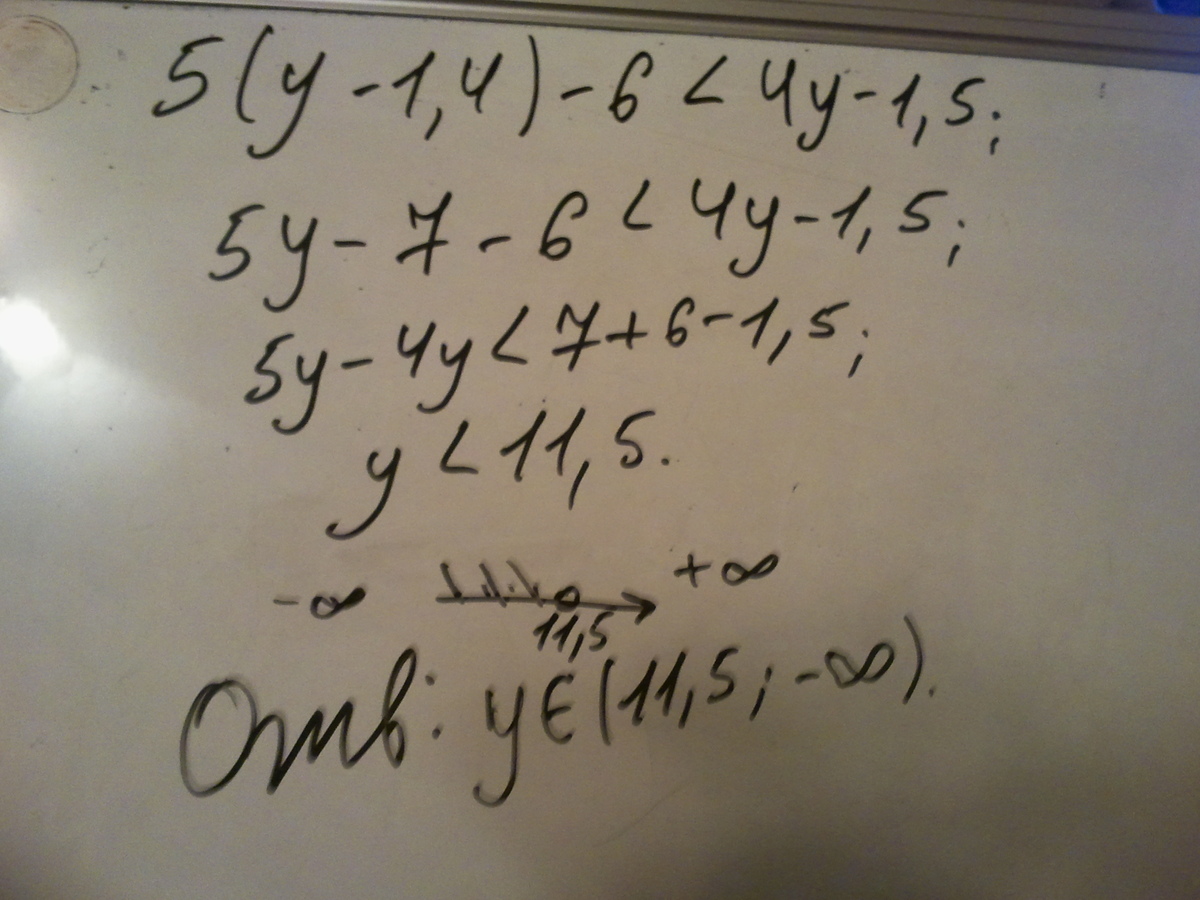 5(y-1,4)-6<4y-1,5;
5y-7-6<4y-1,5;
5y-4y<7+6-1,5;
y<11,5.
-∞ +∞
11,5
Отв: y∈(11,5;-∞).